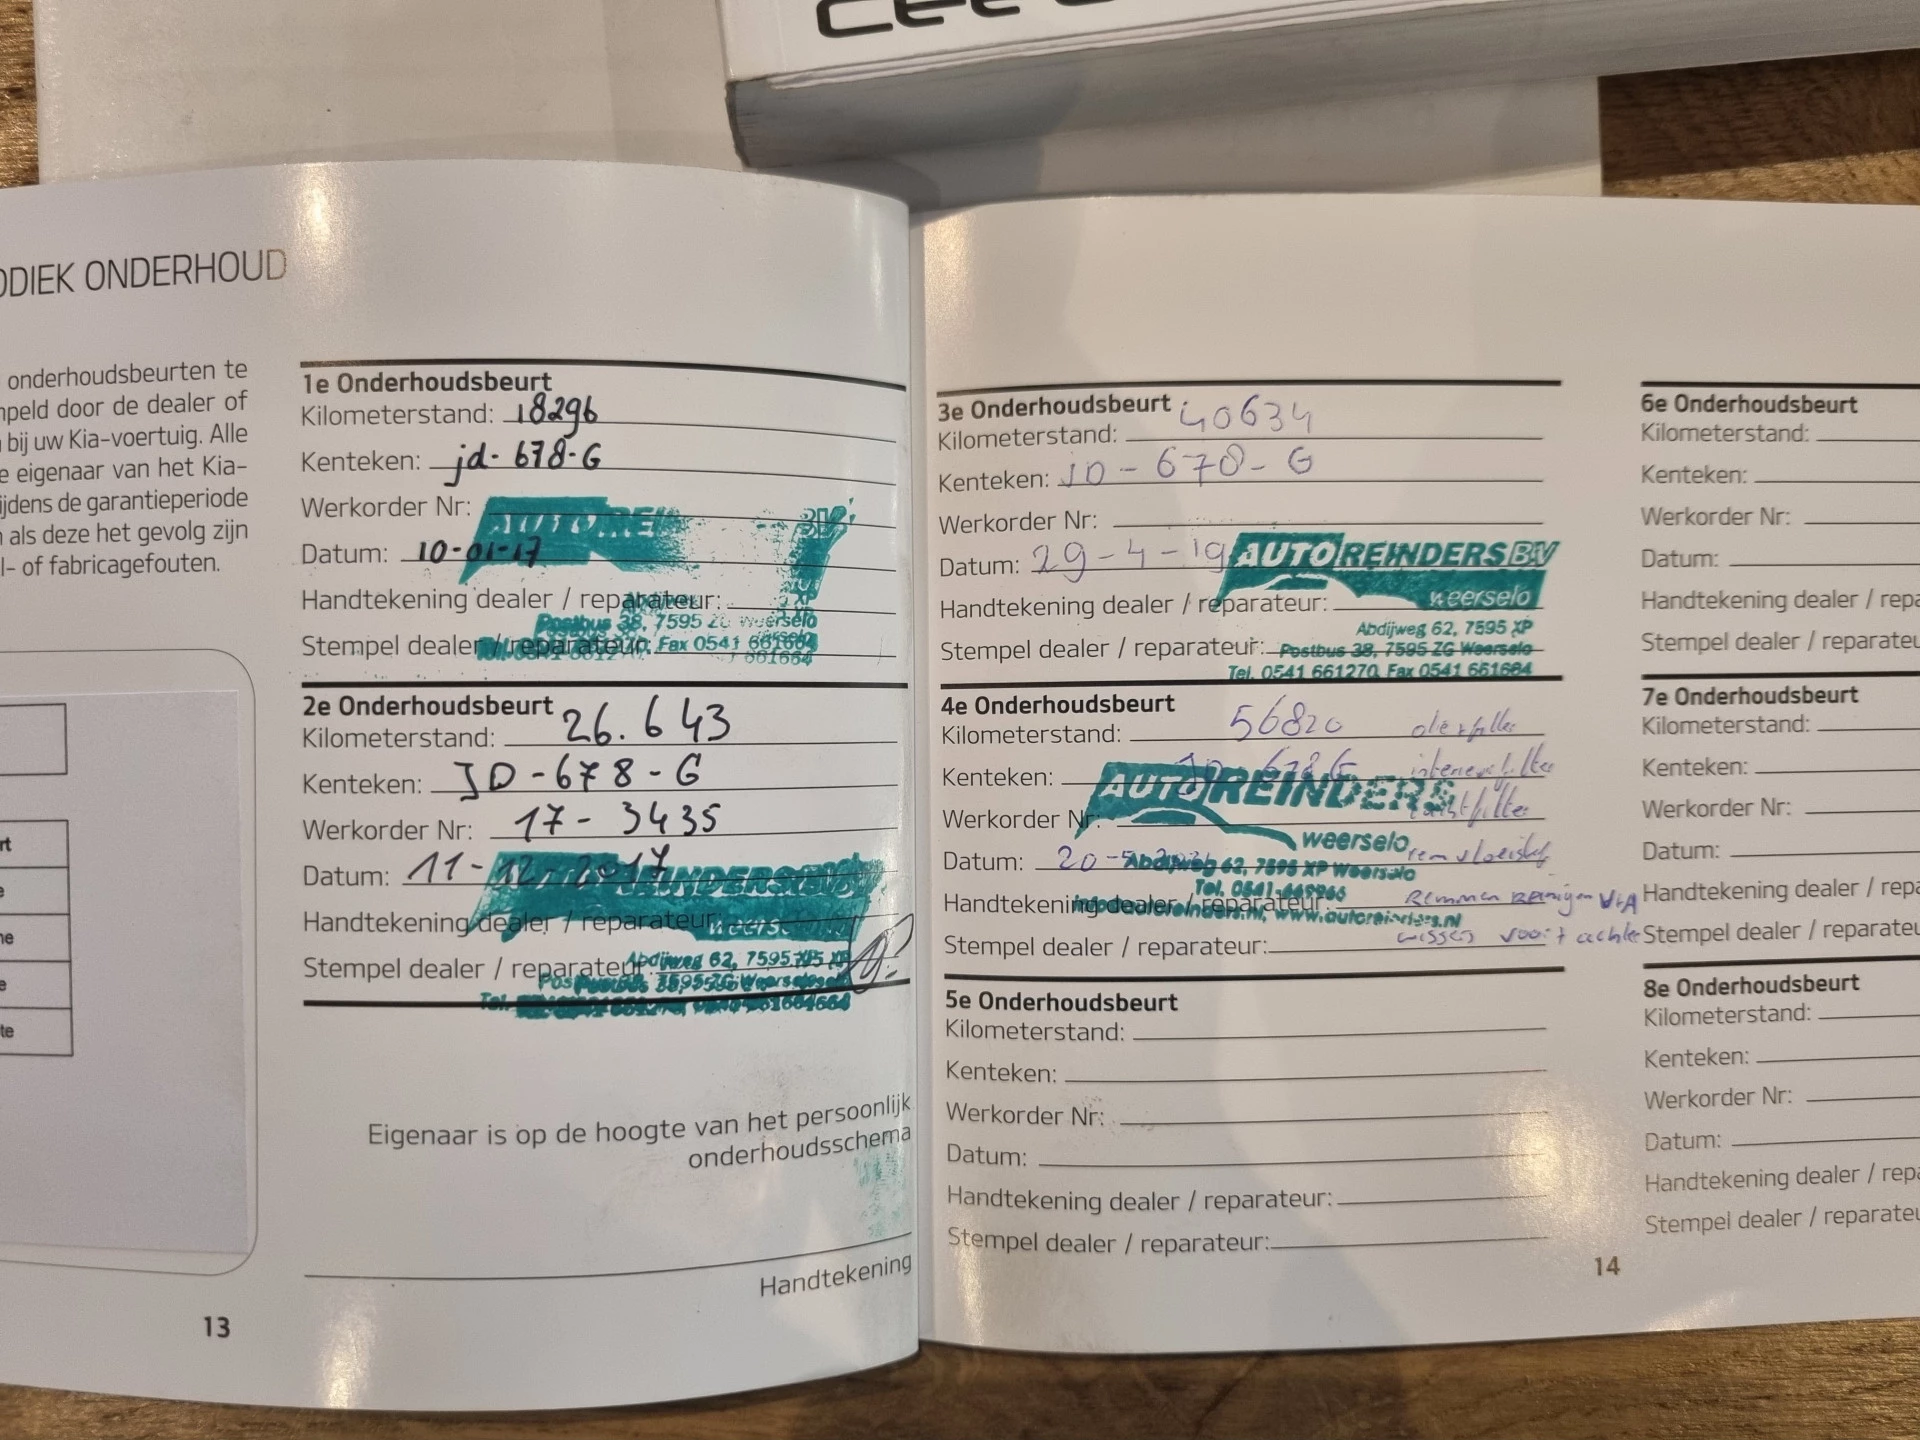 CEE
ODIEK ONDERHOUD
onderhoudsbeurten te
npeld door de dealer of
bij uw Kia-voertuig. Alle
e eigenaar van het Kia-
ijdens de garantieperiode
als deze het gevolg zijn
l- of fabricagefouten.
rt
e
ne
e
te
13
1e Onderhoudsbeurt
Kilometerstand: 18296
Kenteken: jd-678-G
Werkorder Nr:
AUTO REI BV
Datum: 10-01-17
Handtekening dealer / reparateur:
Postbus 38, 7595 ZG Weerselo
Stempel dealer / reparateur: Fax 0541 661664
2e Onderhoudsbeurt
Kilometerstand: 26.643
Kenteken: JD-678-G
Werkorder Nr: 17-3435
Datum: 11-12-2017
REINDERS BV
Handtekening dealer / reparateur:
weerselo
Stempel dealer / reparateur: Abdijweg 62, 7595 XP
Eigenaar is op de hoogte van het persoonlijk
onderhoudsschema
Handtekening
3e Onderhoudsbeurt
Kilometerstand: 40634
Kenteken: JD-678-G
Werkorder Nr:
Datum: 29-4-19
AUTO REINDERS BV
weerselo
Handtekening dealer / reparateur:
Abdijweg 62, 7595 XP
Stempel dealer / reparateur: Postbus 38, 7595 ZG Weerselo
Tel. 0541 661270, Fax 0541 661664
4e Onderhoudsbeurt
Kilometerstand: 56820
Kenteken: JD 678 G
AUTO REINDERS
Werkorder Nr:
weerselo
Datum: 20-5-
Abdijweg 62, 7595 XP Weerselo
Handtekening dealer / reparateur: Remmen reinigen V+A
www.autoreinders.nl
Stempel dealer / reparateur: wissers voor + achter
5e Onderhoudsbeurt
Kilometerstand:
Kenteken:
Werkorder Nr:
Datum:
Handtekening dealer / reparateur:
Stempel dealer / reparateur:
6e Onderhoudsbeurt
Kilometerstand:
Kenteken:
Werkorder Nr:
Datum:
Handtekening dealer / repa
Stempel dealer / reparateu
7e Onderhoudsbeurt
Kilometerstand:
Kenteken:
Werkorder Nr:
Datum:
Handtekening dealer / repa
Stempel dealer / reparateu
8e Onderhoudsbeurt
Kilometerstand:
Kenteken:
Werkorder Nr:
Datum:
Handtekening dealer / repa
Stempel dealer / reparateu
14